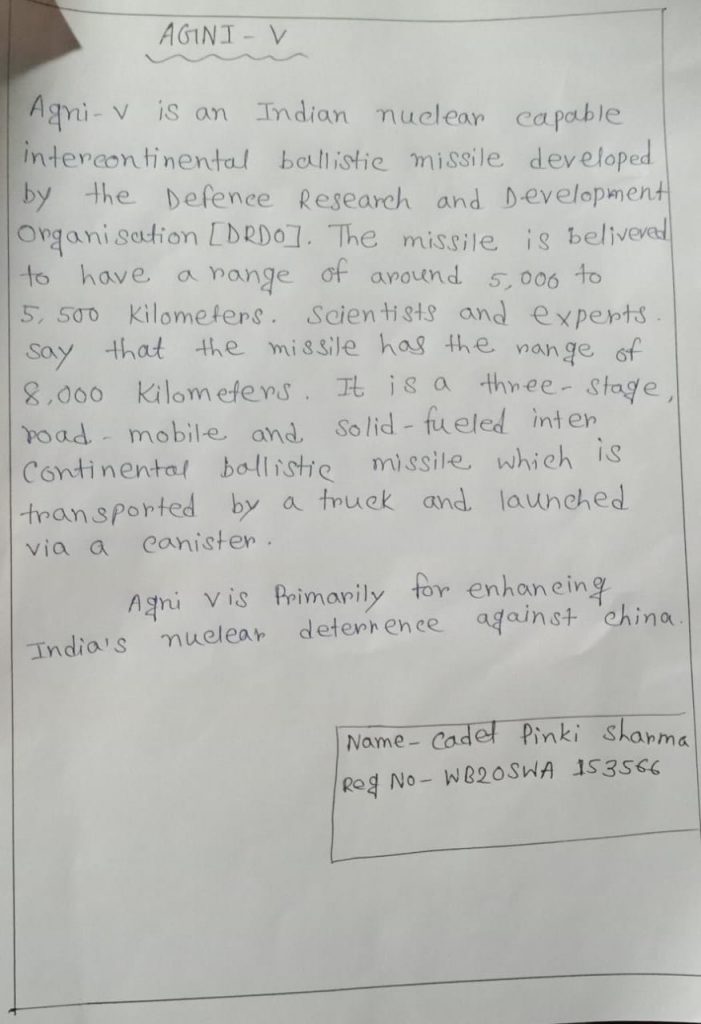 AGNI - V
Agni-v is an Indian nuclear capable
intercontinental ballistic missile developed
by the Defence Research and Development
Organisation [DRDO]. The missile is belivered
to have a range of around 5,000 to
5,500 Kilometers. Scientists and experts.
say that the missile has the range of
8,000 Kilometers. It is a three-stage,
road-mobile and solid-fueled inter
Continental ballistic missile which is
transported by a truck and launched
via a canister.
Agni V is Primarily for enhancing
India's nuclear deterrence against china.
Name- Cadet Pinki Sharma
Reg No- WB20SWA 153566